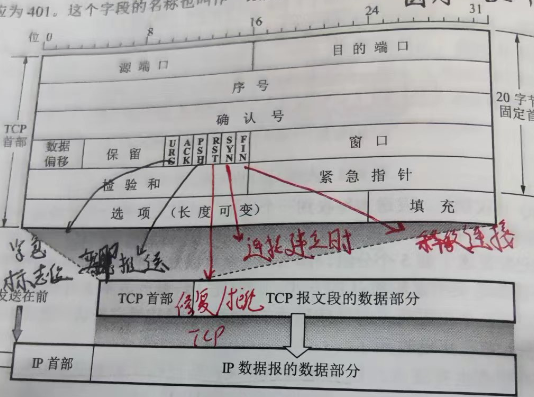 应为401。这个字段的名称也叫作
位 0 8 16 24 31
源端口 目的端口
序号
确认号
数据偏移 保留 URG ACK PSH RST SYN FIN 窗口
检验和 紧急指针
选项（长度可变） 填充
TCP首部
20字节
固定首
连接建立时
释放连接
标志位
发送在前
TCP首部 TCP报文段的数据部分
TCP
IP首部 IP数据报的数据部分